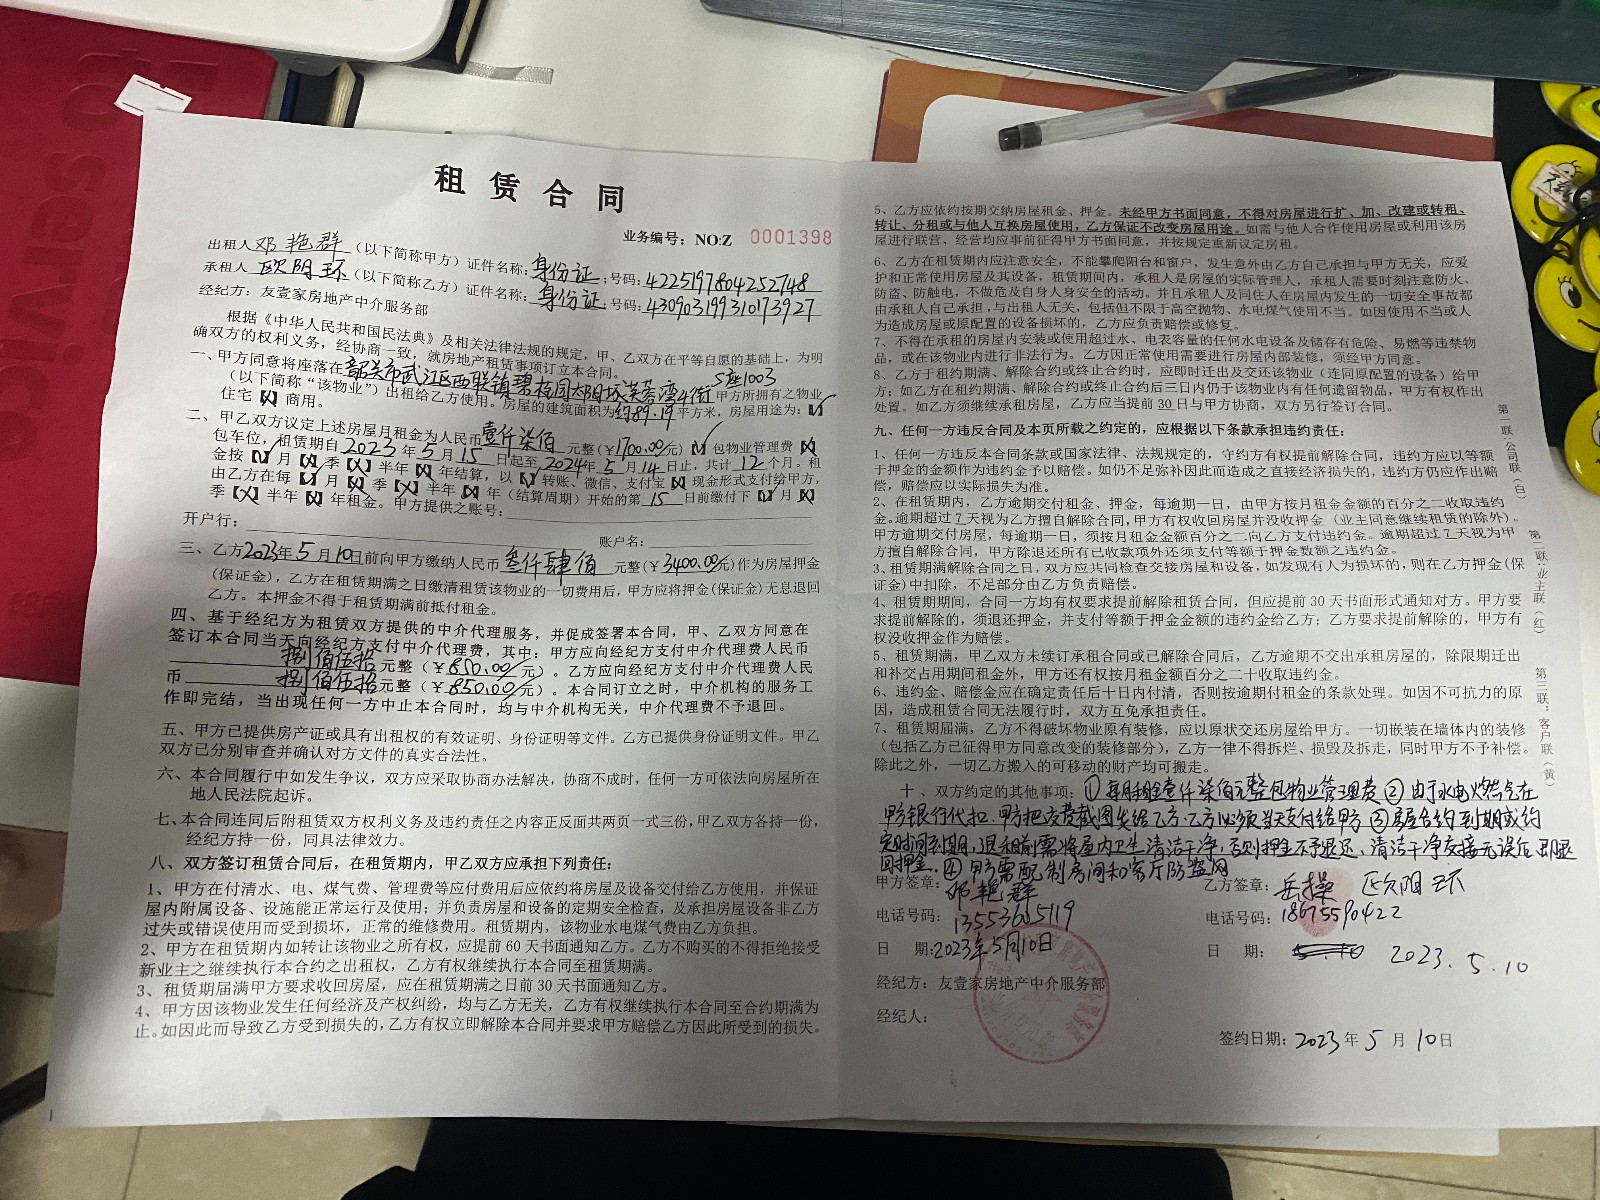 租赁合同
业务编号：NO:Z 0001398
出租人 邓艳群（以下简称甲方）证件名称：身份证；号码：4225197804252748
承租人 欧阳环（以下简称乙方）证件名称：身份证；号码：430903199310173927
经纪方：友壹家房地产中介服务部
根据《中华人民共和国民法典》及相关法律法规的规定，甲、乙双方在平等自愿的基础上，为明
确双方的权利义务，经协商一致，就房地产租赁事项订立本合同。
一、甲方同意将座落在韶关市武江区西联镇碧桂园太阳城芙蓉湾4街5座1003甲方所拥有之物业
（以下简称“该物业”）出租给乙方使用。房屋的建筑面积为约89.19平方米，房屋用途为：【√】
住宅【×】商用。
二、甲乙双方议定上述房屋月租金为人民币壹仟柒佰元整（¥1700.00元）【√】包物业管理费【×】
包车位，租赁期自2023年5月15日起至2024年5月14日止，共计12个月。租
金按【√】月【×】季【×】半年【×】年结算，以【√】转账、微信、支付宝【×】现金形式支付给甲方，
由乙方在每【√】月【×】季【×】半年【×】年（结算周期）开始的第15日前缴付下【√】月【×】
季【×】半年【×】年租金。甲方提供之账号：
开户行： 账户名：
三、乙方2023年5月10日前向甲方缴纳人民币叁仟肆佰元整（¥3400.00元）作为房屋押金
（保证金），乙方在租赁期满之日缴清租赁该物业的一切费用后，甲方应将押金（保证金）无息退回
乙方。本押金不得于租赁期满前抵付租金。
四、基于经纪方为租赁双方提供的中介代理服务，并促成签署本合同，甲、乙双方同意在
签订本合同当天向经纪方支付中介代理费，其中：甲方应向经纪方支付中介代理费人民币
捌佰伍拾元整（¥850.00元）。乙方应向经纪方支付中介代理费人民
币捌佰伍拾元整（¥850.00元）。本合同订立之时，中介机构的服务工
作即完结，当出现任何一方中止本合同时，均与中介机构无关，中介代理费不予退回。
五、甲方已提供房产证或具有出租权的有效证明、身份证明等文件。乙方已提供身份证明文件。甲乙
双方已分别审查并确认对方文件的真实合法性。
六、本合同履行中如发生争议，双方应采取协商办法解决，协商不成时，任何一方可依法向房屋所在
地人民法院起诉。
七、本合同连同后附租赁双方权利义务及违约责任之内容正反面共两页一式三份，甲乙双方各持一份，
经纪方持一份，同具法律效力。
八、双方签订租赁合同后，在租赁期内，甲乙双方应承担下列责任：
1、甲方在付清水、电、煤气费、管理费等应付费用后应依约将房屋及设备交付给乙方使用，并保证
屋内附属设备、设施能正常运行及使用；并负责房屋和设备的定期安全检查，及承担房屋设备非乙方
过失或错误使用而受到损坏，正常的维修费用。租赁期内，该物业水电煤气费由乙方负担。
2、甲方在租赁期内如转让该物业之所有权，应提前60天书面通知乙方。乙方不购买的不得拒绝接受
新业主之继续执行本合约之出租权，乙方有权继续执行本合同至租赁期满。
3、租赁期届满甲方要求收回房屋，应在租赁期满之日前30天书面通知乙方。
4、甲方因该物业发生任何经济及产权纠纷，均与乙方无关，乙方有权继续执行本合同至合约期满为
止。如因此而导致乙方受到损失的，乙方有权立即解除本合同并要求甲方赔偿乙方因此所受到的损失。
5、乙方应依约按期交纳房屋租金、押金。未经甲方书面同意，不得对房屋进行扩、加、改建或转租、
转让、分租或与他人互换房屋使用，乙方保证不改变房屋用途。如需与他人合作使用房屋或利用该房
屋进行联营、经营均应事前征得甲方书面同意，并按规定重新议定房租。
6、乙方在租赁期内应注意安全，不能攀爬阳台和窗户，发生意外由乙方自己承担与甲方无关，应爱
护和正常使用房屋及其设备，租赁期间内，承租人是房屋的实际管理人，承租人需要时刻注意防火、
防盗、防触电，不做危及自身人身安全的活动。并且承租人及同住人在房屋内发生的一切安全事故都
由承租人自己承担，与出租人无关，包括但不限于高空抛物、水电煤气使用不当。如因使用不当或人
为造成房屋或原配置的设备损坏的，乙方应负责赔偿或修复。
7、不得在承租的房屋内安装或使用超过水、电表容量的任何水电设备及储存有危险、易燃等违禁物
品，或在该物业内进行非法行为。乙方因正常使用需要进行房屋内部装修，须经甲方同意。
8、乙方于租约期满、解除合约或终止合约时，应即时迁出及交还该物业（连同原配置的设备）给甲
方；如乙方在租约期满、解除合约或终止合约后三日内仍于该物业内有任何遗留物品，甲方有权作出
处置。如乙方须继续承租房屋，乙方应当提前30日与甲方协商，双方另行签订合同。
九、任何一方违反合同及本页所载之约定的，应根据以下条款承担违约责任：
1、任何一方违反本合同条款或国家法律、法规规定的，守约方有权提前解除合同，违约方应以等额
于押金的金额作为违约金予以赔偿。如仍不足弥补因此而造成之直接经济损失的，违约方仍应作出赔
偿，赔偿应以实际损失为准。
2、在租赁期内，乙方逾期交付租金、押金，每逾期一日，由甲方按月租金金额的百分之二收取违约
金。逾期超过7天视为乙方擅自解除合同，甲方有权收回房屋并没收押金（业主同意继续租赁的除外）。
甲方逾期交付房屋，每逾期一日，须按月租金金额百分之二向乙方支付违约金。逾期超过7天视为甲
方擅自解除合同，甲方除退还所有已收款项外还须支付等额于押金数额之违约金。
3、租赁期满解除合同之日，双方应共同检查交接房屋和设备，如发现有人为损坏的，则在乙方押金（保
证金）中扣除，不足部分由乙方负责赔偿。
4、租赁期期间，合同一方均有权要求提前解除租赁合同，但应提前30天书面形式通知对方。甲方要
求提前解除的，须退还押金，并支付等额于押金金额的违约金给乙方；乙方要求提前解除的，甲方有
权没收押金作为赔偿。
5、租赁期满，甲乙双方未续订承租合同或已解除合同后，乙方逾期不交出承租房屋的，除限期迁出
和补交占用期间租金外，甲方还有权按月租金额百分之二十收取违约金。
6、违约金、赔偿金应在确定责任后十日内付清，否则按逾期付租金的条款处理。如因不可抗力的原
因，造成租赁合同无法履行时，双方互免承担责任。
7、租赁期届满，乙方不得破坏物业原有装修，应以原状交还房屋给甲方。一切嵌装在墙体内的装修
（包括乙方已征得甲方同意改变的装修部分），乙方一律不得拆烂、损毁及拆走，同时甲方不予补偿。
除此之外，一切乙方搬入的可移动的财产均可搬走。
十、双方约定的其他事项：①每月租金壹仟柒佰元整包物业管理费②由于水电燃气在
甲方银行代扣，甲方把交费截图发给乙方，乙方必须当天支付给甲方③房屋合约到期或约
定时间到期，退租前需将屋内卫生清洁干净，否则押金不予退还，清洁干净交接无误后即退
回押金。④甲方需配制房间和客厅防盗网
甲方签章：邓艳群
乙方签章：岳操 欧阳环
电话号码：13553665119
电话号码：18675590422
日 期：2023年5月10日
日 期： 2023.5.10
经纪方：友壹家房地产中介服务部
经纪人：
签约日期：2023年5月10日
第一联：公司联（白） 第二联：业主联（红） 第三联：客户联（黄）